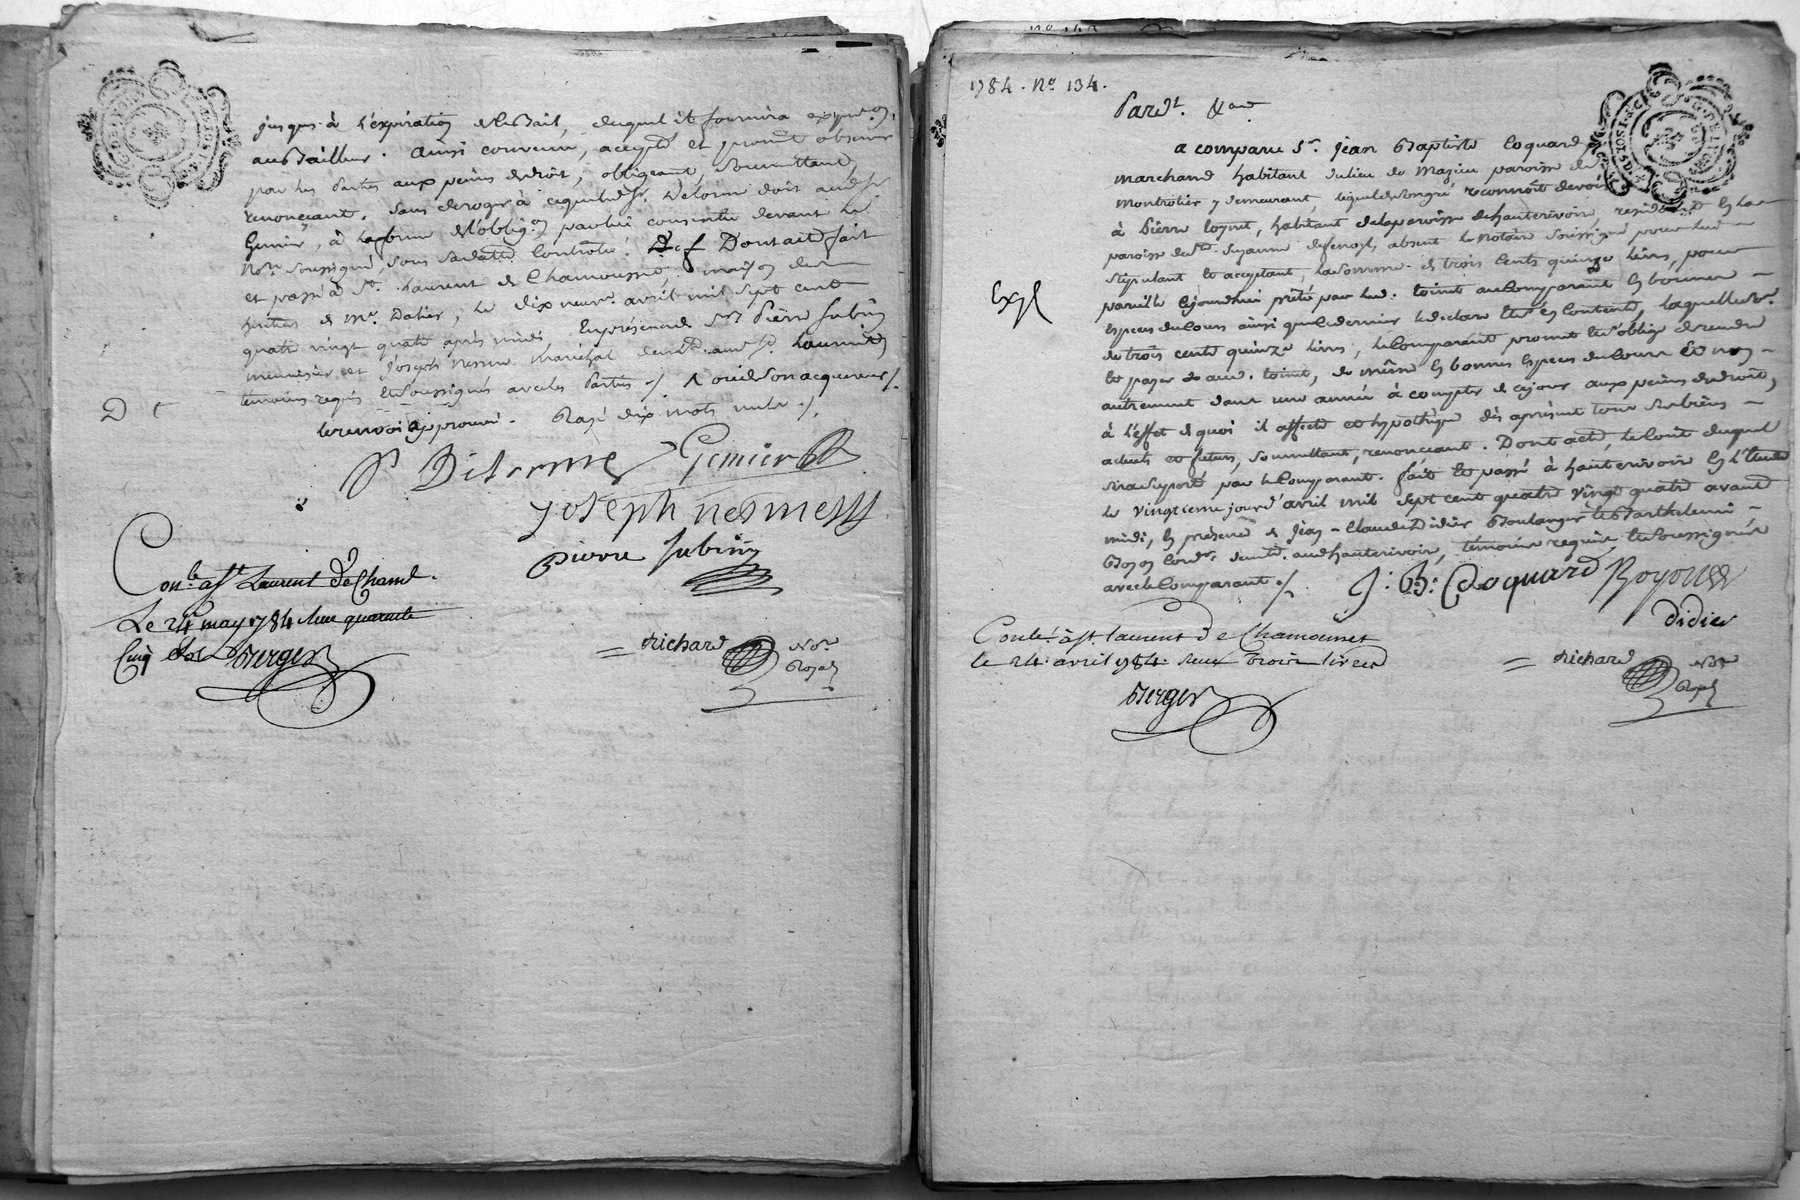 jusques à l'expiration du Bail, duquel il fournira expon.
au Bailleur. Ainsi convenu, accepté et promis observer
par les Parties aux peines de droit, obligeant, soumettant,
renonçant. Sans deroger à ce que led. Sr. Delorme doit aud. Sr.
Gemier, à la forme de l'oblig.on par lui consentie devant le
Nore. soussigné, sous sa date Controlé. Dont acte fait
et passé à St. Laurent de Chamousset, maison des
héritiers de Me. Dalier, le dix neuf avril mil sept cent
quatre vingt quatre après midi, En présence de Sr. Pierre Subrin
menuisier et Joseph Nesme Maréchal demt. aud. St. Laurent
témoins requis et soussignés avec les Parties ./. ou de son acquereur ./.
le renvoi approuvé. Rayé dix mots nuls ./.
Delorme Gemier
Joseph nesme
pierre Subrin
Conlé. à St. Laurent de Cham.
Le 24 may 1784 Reçu quarante
Cinq sols Berger
Richard Nore.
Royal
1784. No. 134.
Pardt. &a
a comparu Sr. Jean Baptiste Coquard,
marchand habitant du lieu de Mazieu paroisse de
Montrotier y demeurant, lequel de son gré reconnoît devoir
à Pierre loynet, habitant de la paroisse de hauterivoire, résident en la
paroisse de absent le Notaire soussigné pour lui
stipulant et acceptant, la somme de trois cents quinze livres, pour
pareille cejourdhui prêtée par led. loinet au Comparant en bonnes
Exp
espèces du Cours ainsi que le dernier le déclare et s'en contente, laquelle somme
de trois cents quinze livres, le Comparant promet et s'oblige de rendre
et payer aud. loinet, de même en bonnes espèces du Cours et non
autrement dans une année à compter de cejour aux peines de droit,
à l'effet de quoi il affecte et hypothèque dès à présent tous ses biens
actuels et futurs, soumettant, renonçant. Dont acte, le Coût duquel
sera supporté par le Comparant. fait et passé à hauterivoire en l'étude
le vingtième jour d'avril mil sept cent quatre vingt quatre avant
midi, en présence de Jean-Claude Didier Boulanger et Barthelemi
Royon Cordr. demt. aud. hauterivoire, témoins requis et soussignés
avec le Comparant ./. J: B: Coquard Royon
didier
Conlé. à St. laurent de Chamousset
le 24. avril 1784. Reçu trois livres
Berger
Richard Nore.
Royal